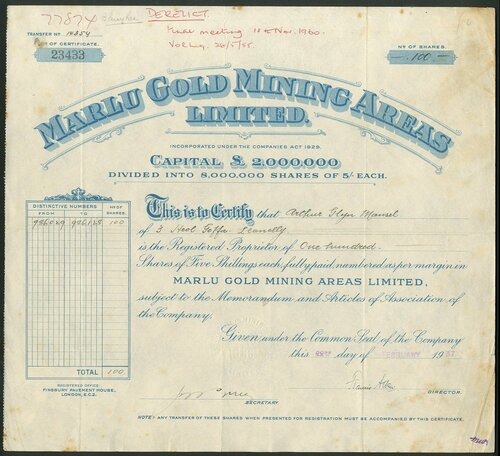 77874
DERELICT.
Final meeting 18th Nov. 1960.
Vol Liq. 26/5/55.
TRANSFER No 14354
No OF CERTIFICATE.
23433
No OF SHARES.
100
MARLU GOLD MINING AREAS
LIMITED.
INCORPORATED UNDER THE COMPANIES ACT 1929.
CAPITAL £ 2,000,000
DIVIDED INTO 8,000,000 SHARES OF 5/- EACH.
DISTINCTIVE NUMBERS No OF SHARES.
FROM TO
100
This is to Certify that Arthur Glyn Mansel
of 3 Heol Goffa Llanelly
is the Registered Proprietor of One hundred
Shares of Five Shillings each, fully paid, numbered as per margin in
MARLU GOLD MINING AREAS LIMITED,
subject to the Memorandum and Articles of Association of
the Company.
Given under the Common Seal of the Company
this day of FEBRUARY 1937
TOTAL 100
REGISTERED OFFICE
FINSBURY PAVEMENT HOUSE,
LONDON, E.C.2.
SECRETARY
DIRECTOR.
NOTE: ANY TRANSFER OF THESE SHARES WHEN PRESENTED FOR REGISTRATION MUST BE ACCOMPANIED BY THIS CERTIFICATE.